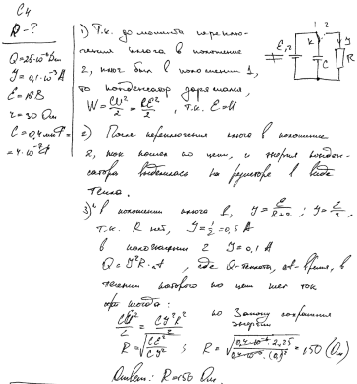 C4
R-?
Q=25·10⁻⁶ Дж
J=0,1·10⁻³ А
ε=15В
r=30 Ом
C=0,4мФ=
=4·10⁻⁴ Ф
1) Т.к. до момента переклю-
чения ключа в положение
2, ключ был в положении 1,
то конденсатор заряжался,
W=CU²/2=Cε²/2, т.к. ε=U
2) После переключения ключа в положение
2, ток пошел по цепи, и энергия конден-
сатора выделилась на резисторе в виде
тепла.
3) в положении ключа 1,
т.к. R нет, J=1/2=0,5 А
в положении 2 J=0,1 А
Q=J²R·Δt, где Q-теплота, Δt-время, в
течении которого по цепи шел ток
тогда:
по Закону сохранения
энергии
=150 (Ом)
Ответ: R=150 Ом.
1 2
K
ε,r
C
J
R